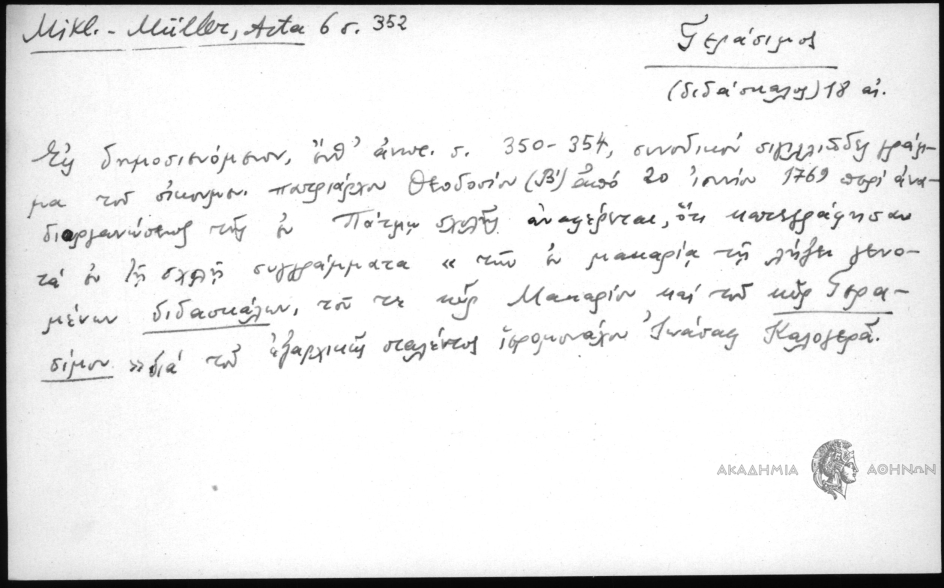 Mikl. - Müller, Acta 6 σ. 352
Γεράσιμος
(διδάσκαλος) 18 αἰ.
Εἰς δημοσιευόμενον, ἔνθ' ἀνωτ. σ. 350-354, συνοδικόν σιγιλλιῶδες γράμ-
μα τοῦ οἰκουμεν. πατριάρχου Θεοδοσίου (Β') ἀπό 20 ἰουνίου 1769 περί ἀνα-
διοργανώσεως τῆς ἐν Πάτμῳ σχολῆς ἀναφέρεται, ὅτι κατεγράφησαν
τά ἐν τῇ σχολῇ συγγράμματα « τῶν ἐν μακαρίᾳ τῇ λήξει γενο-
μένων διδασκάλων, τοῦ τε κῦρ Μακαρίου καί τοῦ κῦρ Γερα-
σίμου » διά τοῦ ἐξαρχικῶς σταλέντος ἱερομονάχου Ἰωάσαφ Καλογερᾶ.
ΑΚΑΔΗΜΙΑ ΑΘΗΝΩΝ